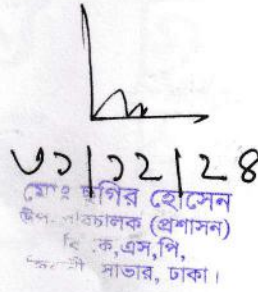 ৩১|১২|২৪
মোঃ ছগির হোসেন
উপ-পরিচালক (প্রশাসন)
বি,কে,এস,পি,
সাভার, ঢাকা।